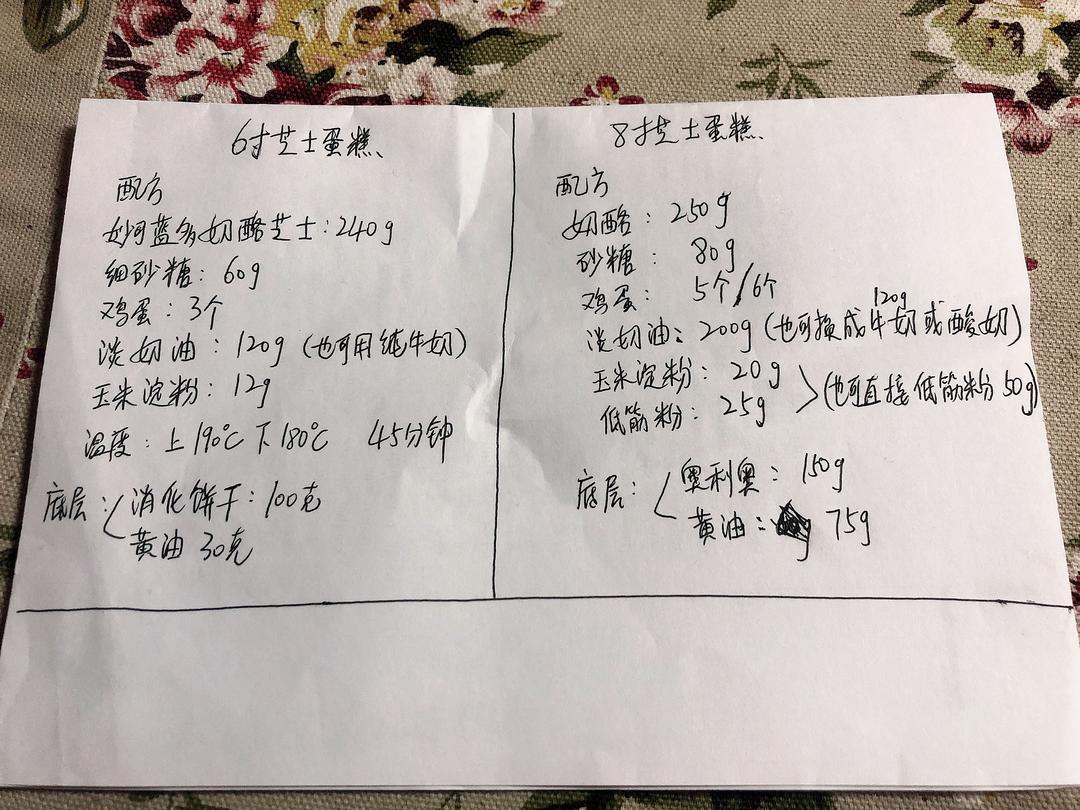 6寸芝士蛋糕、
配方
妙可蓝多奶酪芝士:240g
细砂糖:60g
鸡蛋:3个
淡奶油:120g(也可用纯牛奶)
玉米淀粉:12g
温度:上190℃下180℃ 45分钟
底层:
消化饼干:100克
黄油 30克
8寸芝士蛋糕、
配方
奶酪:250g
砂糖:80g
鸡蛋:5个/6个
120g
淡奶油:200g(也可换成牛奶或酸奶)
玉米淀粉:20g
低筋粉:25g
(也可直接低筋粉50g)
底层:
奥利奥:150g
黄油: 75g